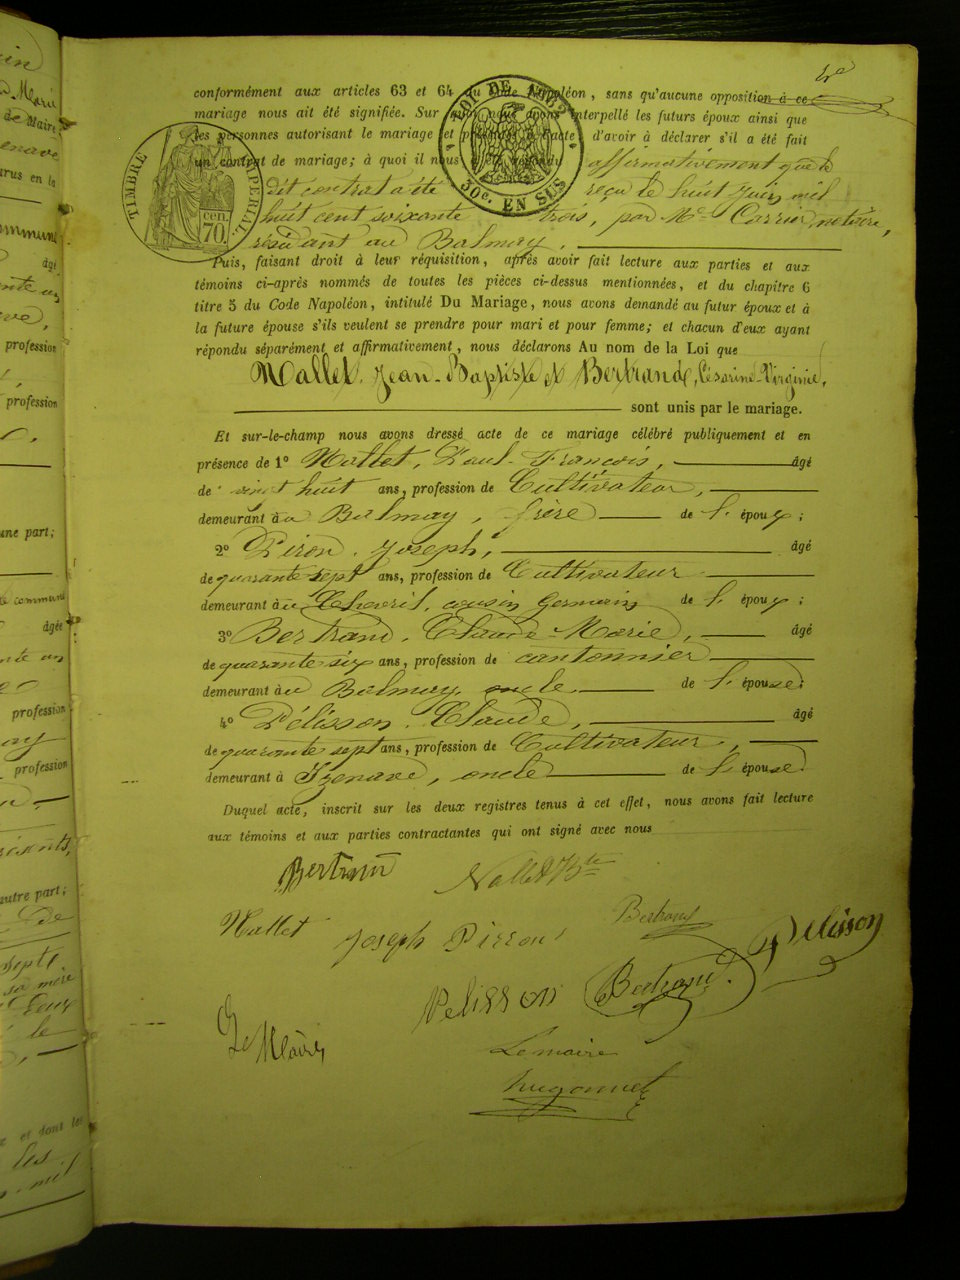 conformément aux articles 63 et 64 du Code Napoléon, sans qu'aucune opposition à ce
mariage nous ait été signifiée. Sur quoi nous avons interpellé les futurs époux ainsi que
les personnes autorisant le mariage et d'avoir à déclarer s'il a été fait
un contrat de mariage; à quoi il nous a été répondu affirmativement que le
dit contrat a été reçu le huit Juin mil
huit cent soixante trois, par Me Carrier, notaire,
résidant au Balmay.
TIMBRE IMPÉRIAL
cen. 70.
LOI DE 1862
30c. EN SUS
Puis, faisant droit à leur réquisition, après avoir fait lecture aux parties et aux
témoins ci-après nommés de toutes les pièces ci-dessus mentionnées, et du chapitre 6
titre 5 du Code Napoléon, intitulé Du Mariage, nous avons demandé au futur époux et à
la future épouse s'ils veulent se prendre pour mari et pour femme; et chacun d'eux ayant
répondu séparément et affirmativement, nous déclarons Au nom de la Loi que
Mallet, Jean-Baptiste et Bertrand, Césarine-Virginie,
sont unis par le mariage.
Et sur-le-champ nous avons dressé acte de ce mariage célébré publiquement et en
présence de 1o Mallet, Paul-François, âgé
de vingt huit ans, profession de Cultivateur,
demeurant à u Balmay, frère de l'époux;
2o Piron, Joseph, âgé
de quarante sept ans, profession de Cultivateur
demeurant à u Chevril, cousin Germain de l'époux;
3o Bertrand, Claude-Marie, âgé
de quarante six ans, profession de cantonnier
demeurant à u Balmay, oncle de l'épouse;
4o Pélisson, Claude, âgé
de quarante sept ans, profession de Cultivateur,
demeurant à Izenave, oncle de l'épouse.
Duquel acte, inscrit sur les deux registres tenus à cet effet, nous avons fait lecture
aux témoins et aux parties contractantes qui ont signé avec nous
Bertrand Mallet Bte
Mallet Joseph Pirron Bertrand Pelisson
Pelisson Bertrand
Le Maire
Le maire
hugonnet